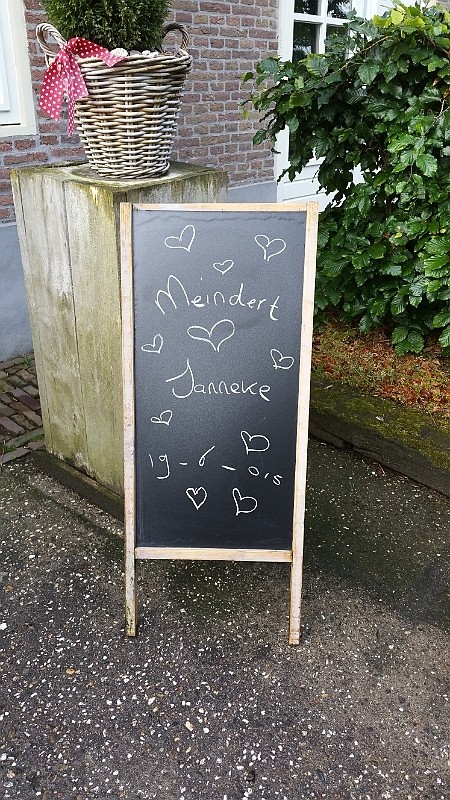 Meindert
Janneke
19-6-015